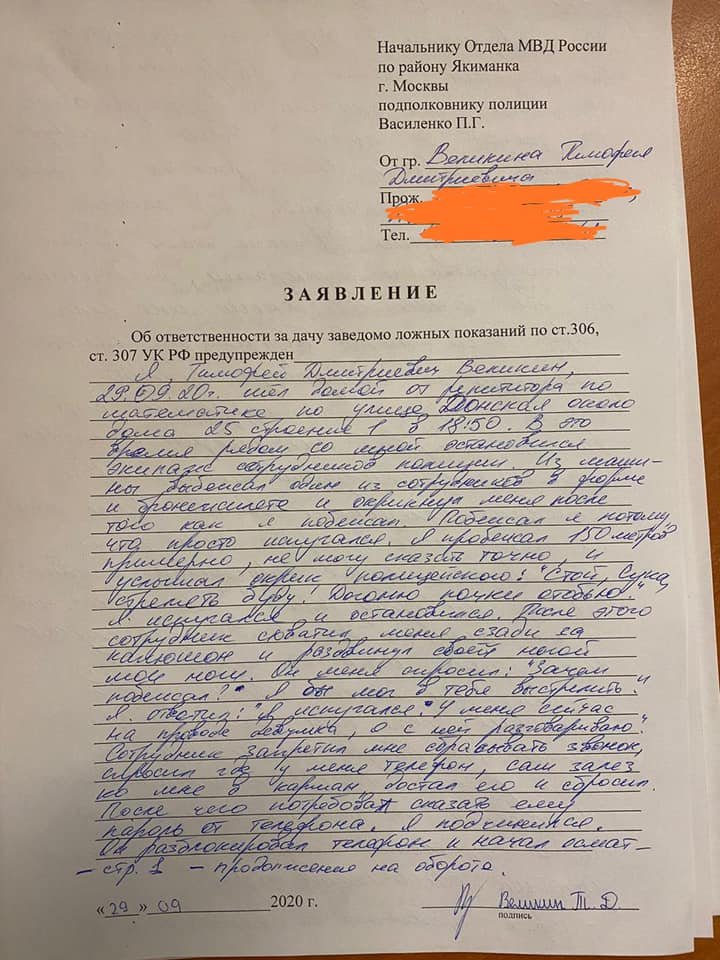 Начальнику Отдела МВД России
по району Якиманка
г. Москвы
подполковнику полиции
Василенко П.Г.
От гр. Великина Тимофея
Дмитриевича
Прож.
Тел.
ЗАЯВЛЕНИЕ
Об ответственности за дачу заведомо ложных показаний по ст.306,
ст. 307 УК РФ предупрежден
Я, Тимофей Дмитриевич Великин,
29.09.20г. шёл домой от репетитора по
математике по улице Донская около
дома 25 строение 1 в 18:50. В это
время рядом со мной остановился
экипаж сотрудников полиции. Из маши-
ны выбежал один из сотрудников в форме
и бронежилете и окрикнул меня после
того как я побежал. Побежал я потому,
что просто испугался. Я пробежал 150 метров
примерно, не могу сказать точно, и
услышал окрик полицейского: "Стой, Сука,
стрелять буду! Догоню почки отобью"
Я испугался и остановился. После этого
сотрудник схватил меня сзади за
капюшон и раздвинул своей ногой
мои ноги. Он меня спросил: "Зачем
побежал?" Я бы мог в тебя выстрелить."
Я ответил: "Я испугался. У меня сейчас
на проводе девушка, я с ней разговариваю".
Сотрудник запретил мне сбрасывать звонок,
спросил где у меня телефон, сам залез
ко мне в карман достал его и сбросил.
После чего потребовал сказать ему
пароль от телефона. Я подчинился.
Он разблокировал телефон и начал осмат-
– стр. 1 – продолжение на обороте.
« 29 » 09 2020 г. Великин Т. Д.
подпись